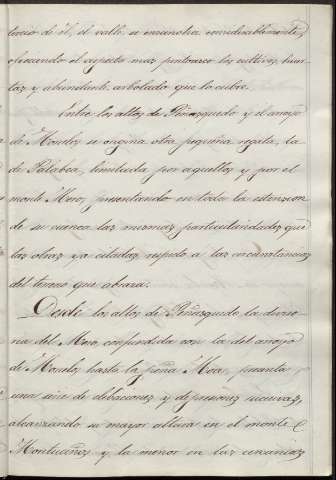 tercio de él, el valle se ensancha considerablemente,
ofreciendo el aspecto mas pintoresco los cultivos, huer-
tas y abundante arbolado que lo cubre.
Entre los altos de Piñazquedo y el arroyo
de se origina otra pequeña regata, la
de limitada por aquellos y por el
monte Mero, presentando en toda la estension
de su cuenca las mismas particularidades que
las otras ya citadas respecto a las circunstancias
del terreno que abraza.
Desde los altos de Piñazquedo la diviso-
ria del Mero, confundida con la del arroyo
de hasta la peña Moa, presenta
una série de elevaciones y depresiones sucesivas,
alcanzando su mayor altura en el monte
y la menor en las cercanías